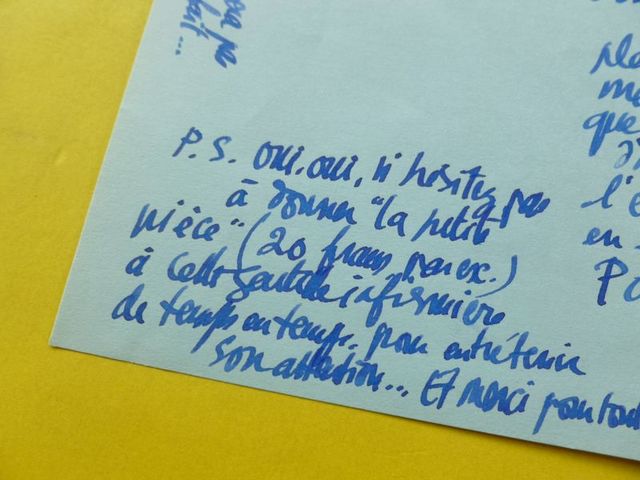 P.S. oui.oui, n'hésitez pas
à donner "la petite
pièce" (20 francs par ex.)
à cette gentille infirmière
de temps en temps. pour entretenir
son attention... Et merci pour tout
que
l'
en